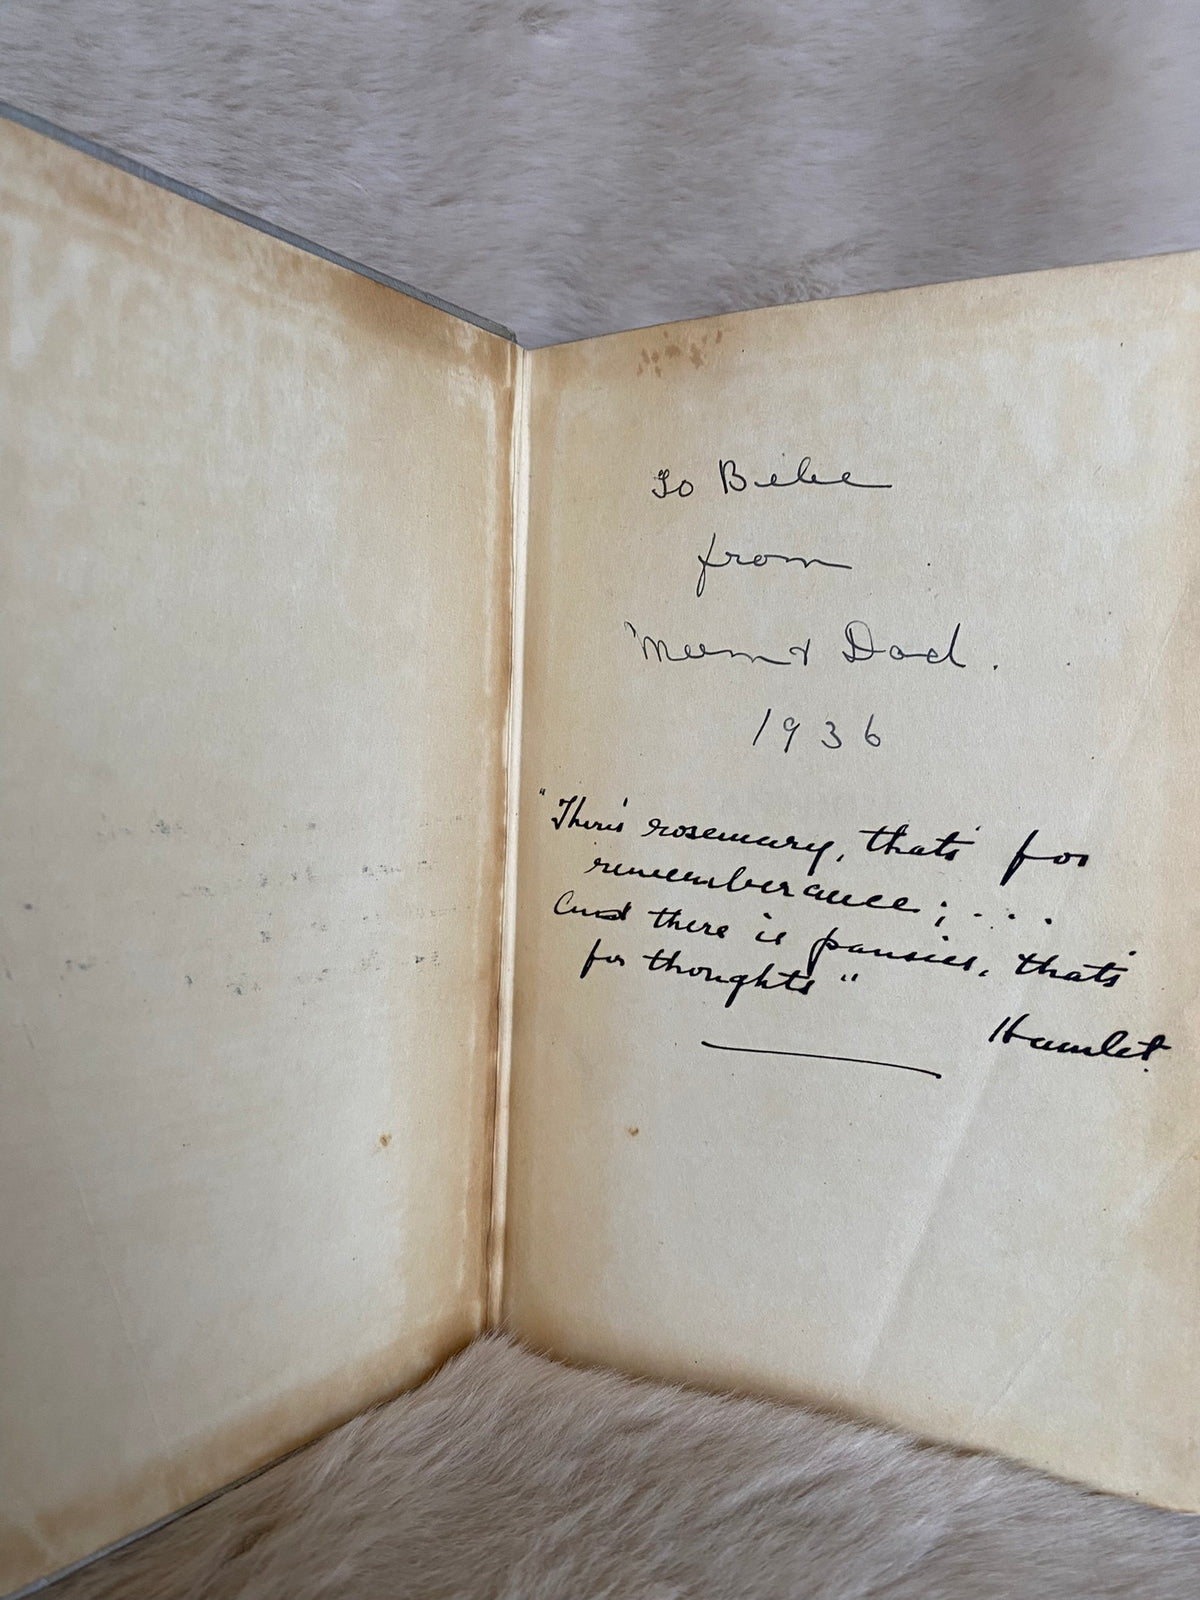 To Bebe
from
Mum & Dad.
1936
"There's rosemary, that's for
rememberance; . . .
And there is pansies, that's
for thoughts"
Hamlet.